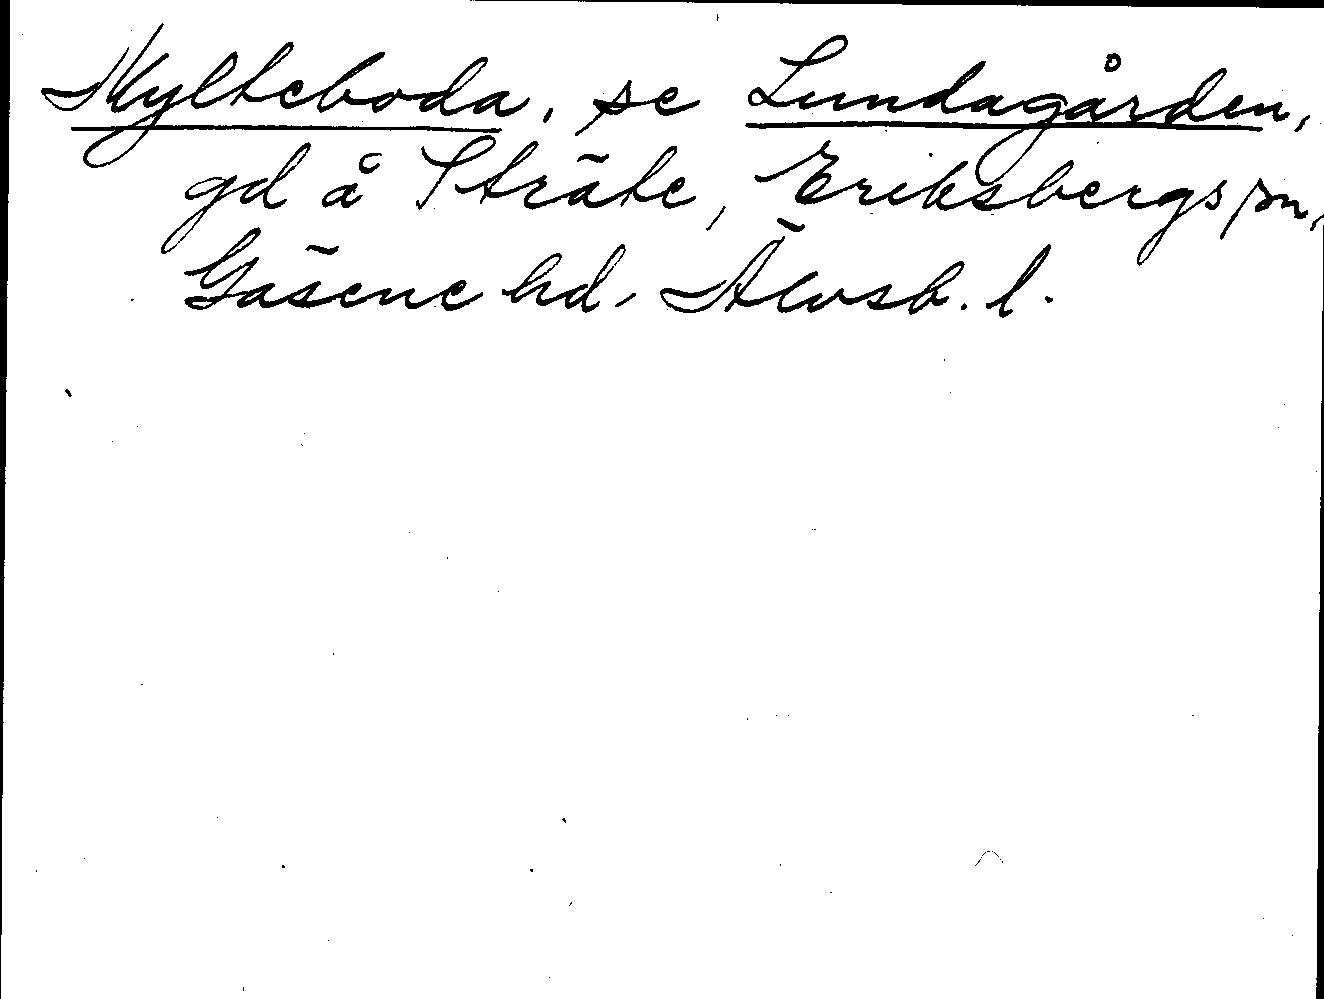 Mylteboda, se Lundagården,
gd å Sträte, Eriksbergs sn,
Gäsene hd, Älvsb. l.